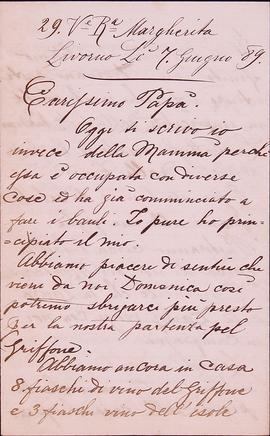 29. Vᵉ Rᵃ Margherita
Livorno Lì 7. Giugno 89.
Carissimo Papà.
Oggi ti scrivo io
invece della Mamma perchè
essa è occupata con diverse
cose ed ha già comminciato a
fare i bauli. Io pure ho prin-
=cipiato il mio.
Abbiamo piacere di sentire che
vieni da noi Domenica così
potremo sbrigarci più presto
per la nostra partenza pel
Griffone.
Abbiamo ancora in casa
8 fiaschi di vino del Griffone
e 3 fiaschi vino dell'isole